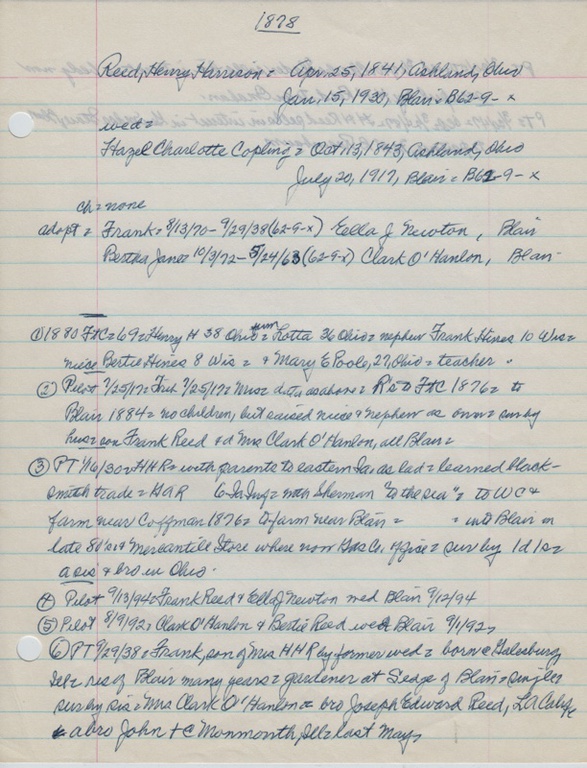 1878
Reed, Henry Harrison = Apr. 25, 1841, Ashland, Ohio
Jan. 15, 1930, Blair = B62-9-x
wed =
Hazel Charlotte Copling = Oct 13, 1843, Ashland, Ohio
July 20, 1917, Blair = B62-9-x
ch = none
adopt = Frank = 8/13/70 - 9/29/38 (62-9-x) Ella J Newton, Blair
Bertha Jane = 10/3/72 - 5/24/63 (62-9-x) Clark O'Hanlon, Blair
① 1880 FtC = 69 = Henry H 38 Ohio = Lotta 36 Ohio = nephew Frank Hines 10 Wis =
niece Bertie Hines 8 Wis = & Mary E Poole, 27, Ohio = teacher
② Pilot 7/25/17 = 7/25/17 = Mrs = data as above = R's to FtC 1876 = to
Blair 1884 = no children, but raised niece & nephew as own = sur by
hus = son Frank Reed & d Mrs Clark O'Hanlon, all Blair =
③ PT 1/16/30 = HHR = with parents to eastern Ia. as lad = learned black-
smith trade = GAR 6 Ia Inf = with Sherman "to the sea" = to WC &
farm near Coffman 1876 = to farm near Blair = = into Blair in
late 80's = Mercantile Store where now Gas Co. office = sur by 1 d 1 s =
a sis & bro in Ohio.
④ Pilot 9/13/94 = Frank Reed & Ella J Newton wed Blair 9/12/94
⑤ Pilot 8/9/92 = Clark O'Hanlon & Bertie Reed wed Blair 9/1/92
⑥ PT 9/29/38 = Frank, son of Mrs HHR by former wed = born @ Galesburg
Ill = res of Blair many years = gardener at Sedge of Blair = single =
sur by sis = Mrs Clark O'Hanlon & bro Joseph Edward Reed, LA Calif
& a bro John + @ Monmonth, Ill = last May